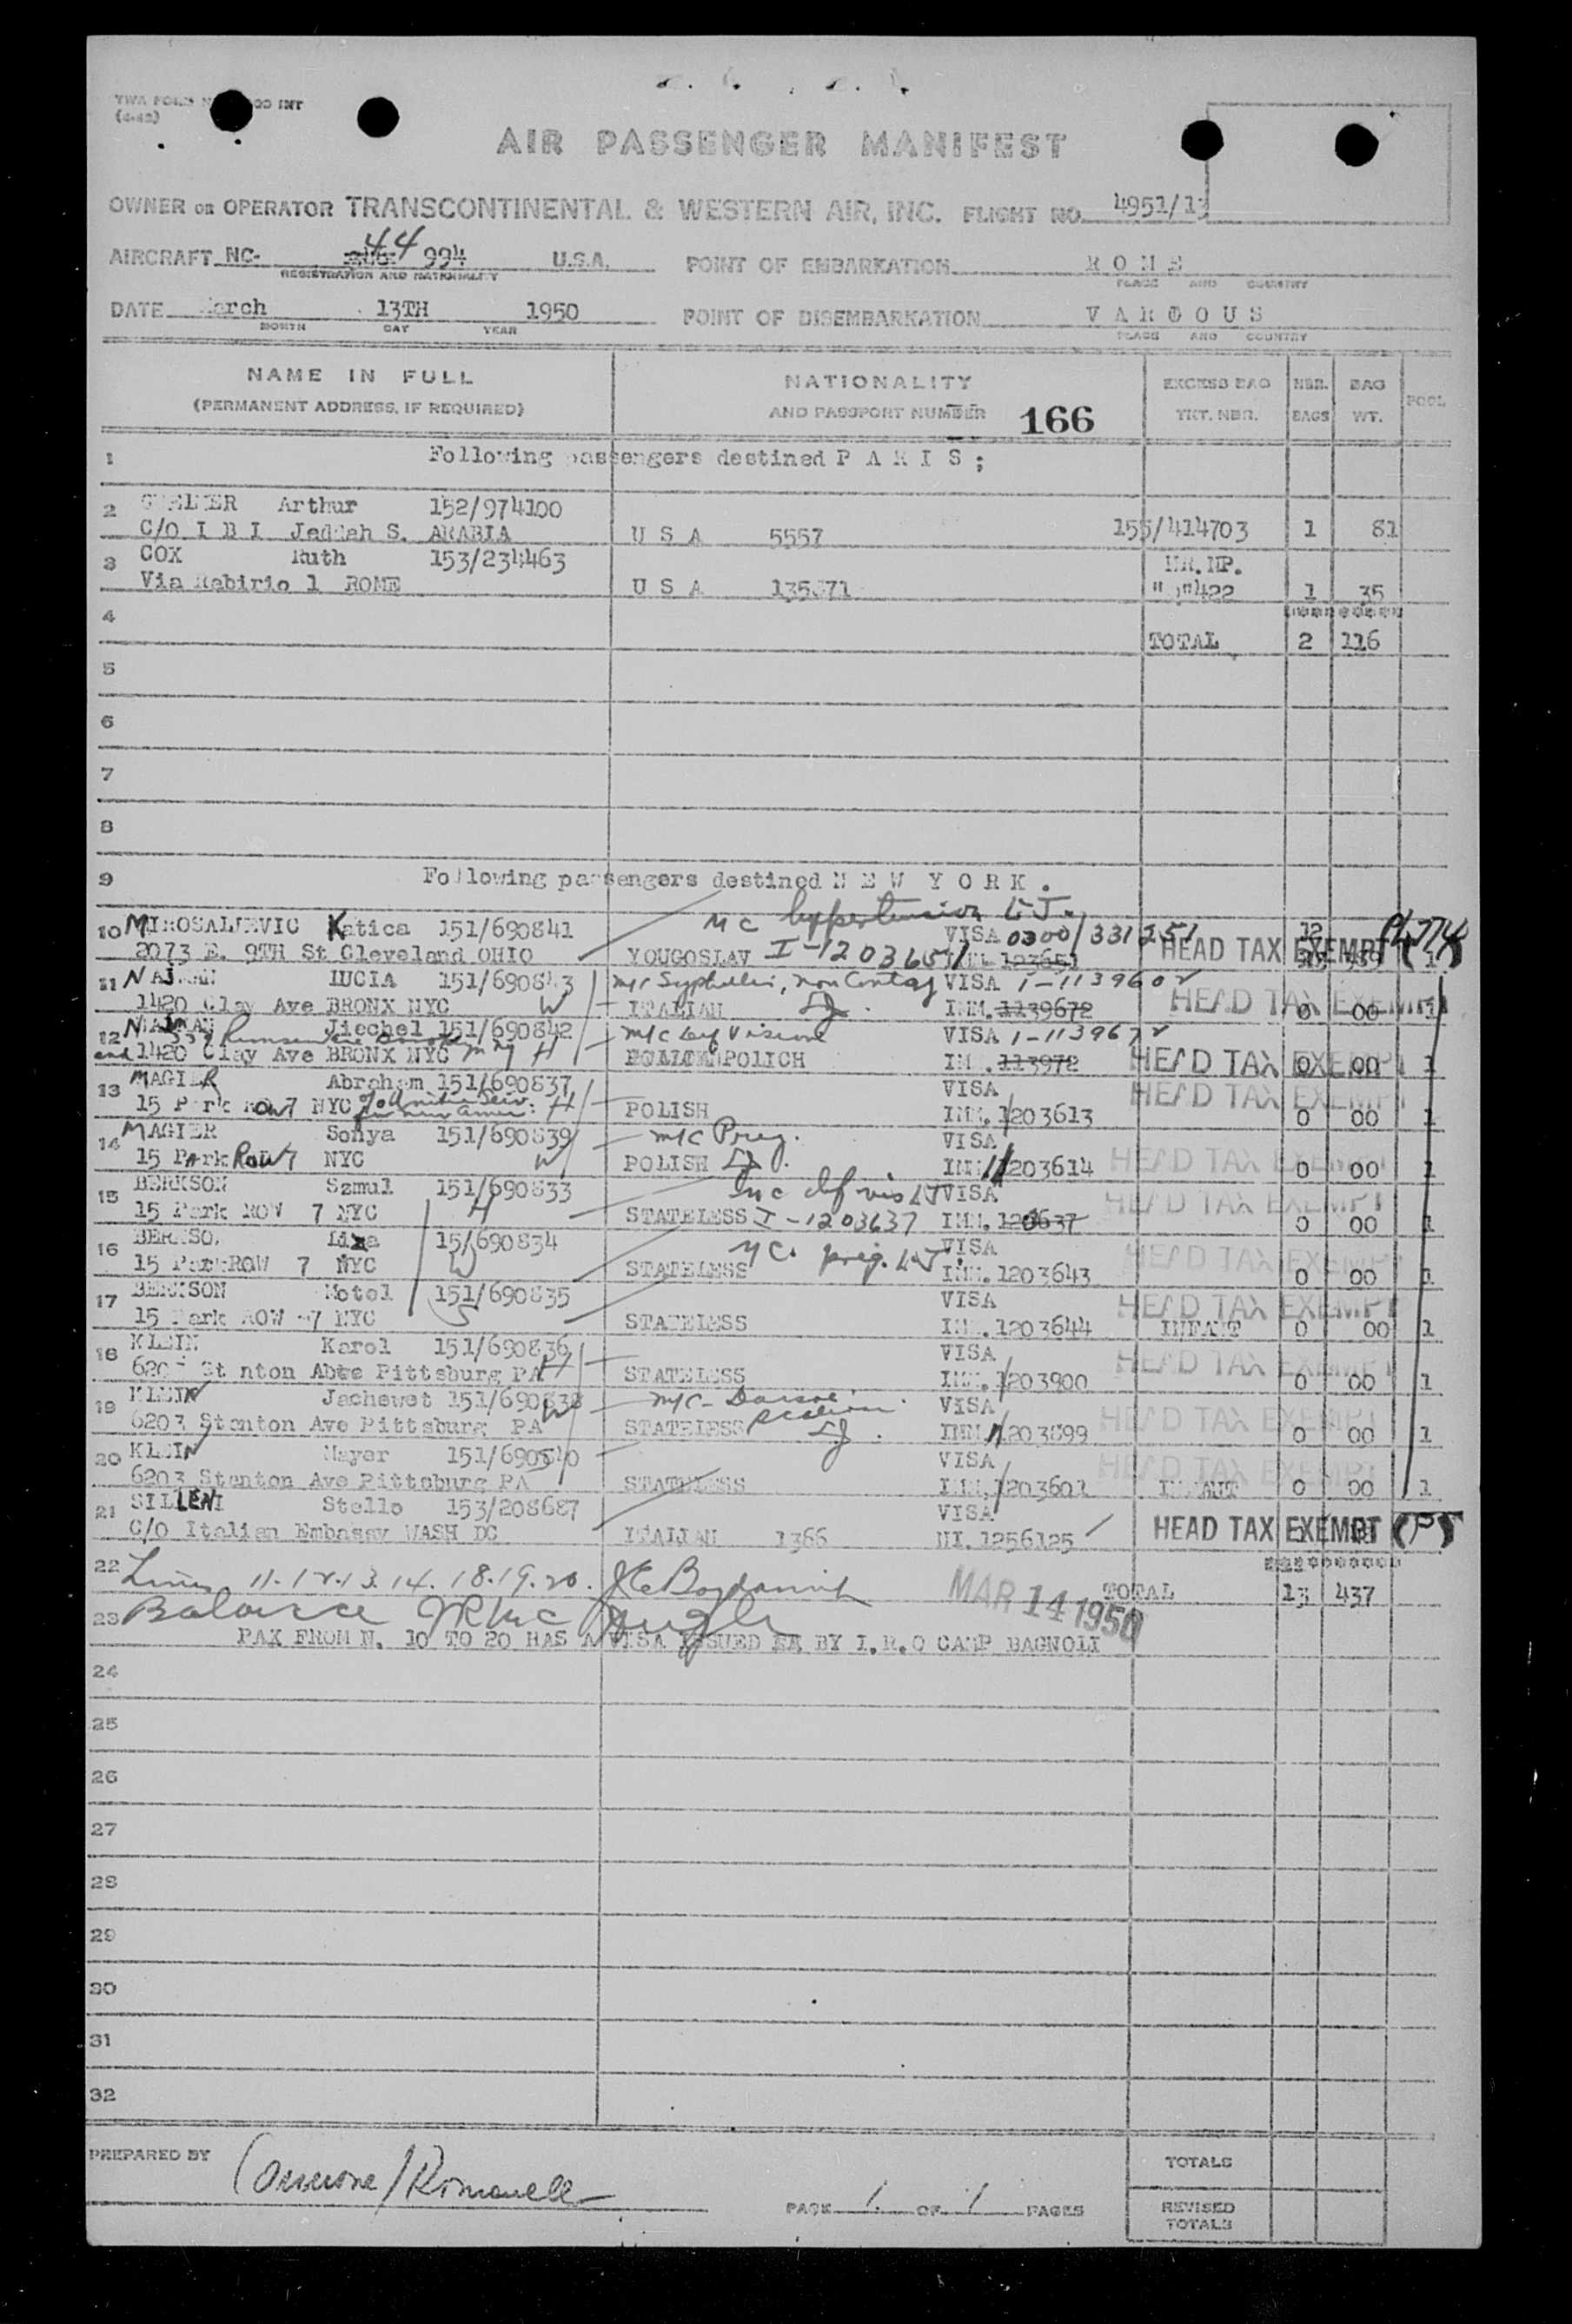 AIR PASSENGER MANIFEST
OWNER OR OPERATOR TRANSCONTINENTAL & WESTERN AIR, INC. FLIGHT NO. 4951/13
AIRCRAFT NC- 44 994 U.S.A. POINT OF EMBARKATION R O M E
REGISTRATION AND NATIONALITY PLACE AND COUNTRY
DATE March 13TH 1950 POINT OF DISEMBARKATION V A R I O U S
MONTH DAY YEAR PLACE AND COUNTRY
NAME IN FULL NATIONALITY EXCESS BAG NBR. BAG POOL
(PERMANENT ADDRESS, IF REQUIRED) AND PASSPORT NUMBER 166 TKT. NBR. BAGS WT.
1 Following passengers destined P A R I S ;
2 Arthur 152/974100
C/O I B I Jeddah S. ARABIA U S A 5557 155/414703 1 81
3 COX Ruth 153/234463 MR. MP.
Via Rabirio 1 ROME U S A 1 35
4 TOTAL 2 116
5
6
7
8
9 Following passengers destined N E W Y O R K .
10 MIROSALJEVIC Katica 151/690841 MC hypertension LJ. VISA 0300/331251 12
2073 E. 9TH St Cleveland OHIO YOUGOSLAV I-1203651 123651 HEAD TAX EXEMPT 1
11 NAJMAN LUCIA 151/690843 M/C Syphilis, non Contag VISA 1-1139602
1420 Clay Ave BRONX NYC W ITALIAN LJ. IMM. 1139672 HEAD TAX EXEMPT 0 00 1
12 NAJMAN Jiechel 151/690842 M/C def Vision VISA 1-1139672
1420 Clay Ave BRONX NYC H POLICH IMM. 113972 HEAD TAX EXEMPT 0 00 1
13 MAGIER Abraham 151/690837 VISA HEAD TAX EXEMPT
15 Park Row 7 NYC c/o United Serv. for new Amer. H POLISH IMM. 1203613 0 00 1
14 MAGIER Sonya 151/690839 M/C Preg. VISA
15 Park Row 7 NYC W POLISH LJ. IMM 1203614 HEAD TAX EXEMPT 0 00 1
15 BERKSON Szmul 151/690833 MC def vis LJ VISA HEAD TAX EXEMPT
15 Park ROW 7 NYC H STATELESS I-1203637 IMM. 120637 0 00 1
16 BERKSON Liza 15/690834 MC. preg. LJ. VISA HEAD TAX EXEMPT
15 Park ROW 7 NYC W STATELESS IMM. 1203643 0 00 1
17 BERKSON Motel 151/690835 VISA HEAD TAX EXEMPT
15 Park ROW 7 NYC S STATELESS IMM. 1203644 INFANT 0 00 1
18 KLEIN Karol 151/690836 VISA HEAD TAX EXEMPT
6203 Stanton Abte Pittsburg PA H STATELESS IMM. 1203900 0 00 1
19 KLEIN Jachewet 151/690838 M/C - Dorsal scoliosis VISA HEAD TAX EXEMPT
6203 Stanton Ave Pittsburg PA W STATELESS LJ. IMM 1203899 0 00 1
20 KLEIN Mayer 151/690840 VISA HEAD TAX EXEMPT
6203 Stanton Ave Pittsburg PA STATELESS IMM. 1203601 INFANT 0 00 1
21 SILLENI Stello 153/208687 VISA
C/O Italian Embassy WASH DC ITALIAN 1366 NI. 1256125 HEAD TAX EXEMPT
22 Lines 11.12.13.14.18.19.20. MAR 14 1950 TOTAL 13 437
23 Balance
PAX FROM N. 10 TO 20 HAS A VISA ISSUED BY I.R.O CAMP BAGNOLI
24
25
26
27
28
29
30
31
32
PREPARED BY TOTALS
PAGE 1 OF 1 PAGES REVISED
TOTALS